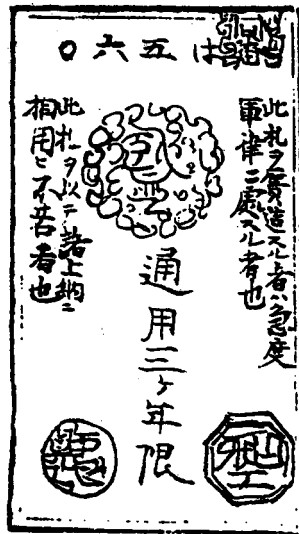 は五六〇
此札ヲ贋造スル者ハ急度
軍律ニ處スル者也
通用三ヶ年限
此札ヲ以テ諸上納ニ
相用ヒ不苦者也